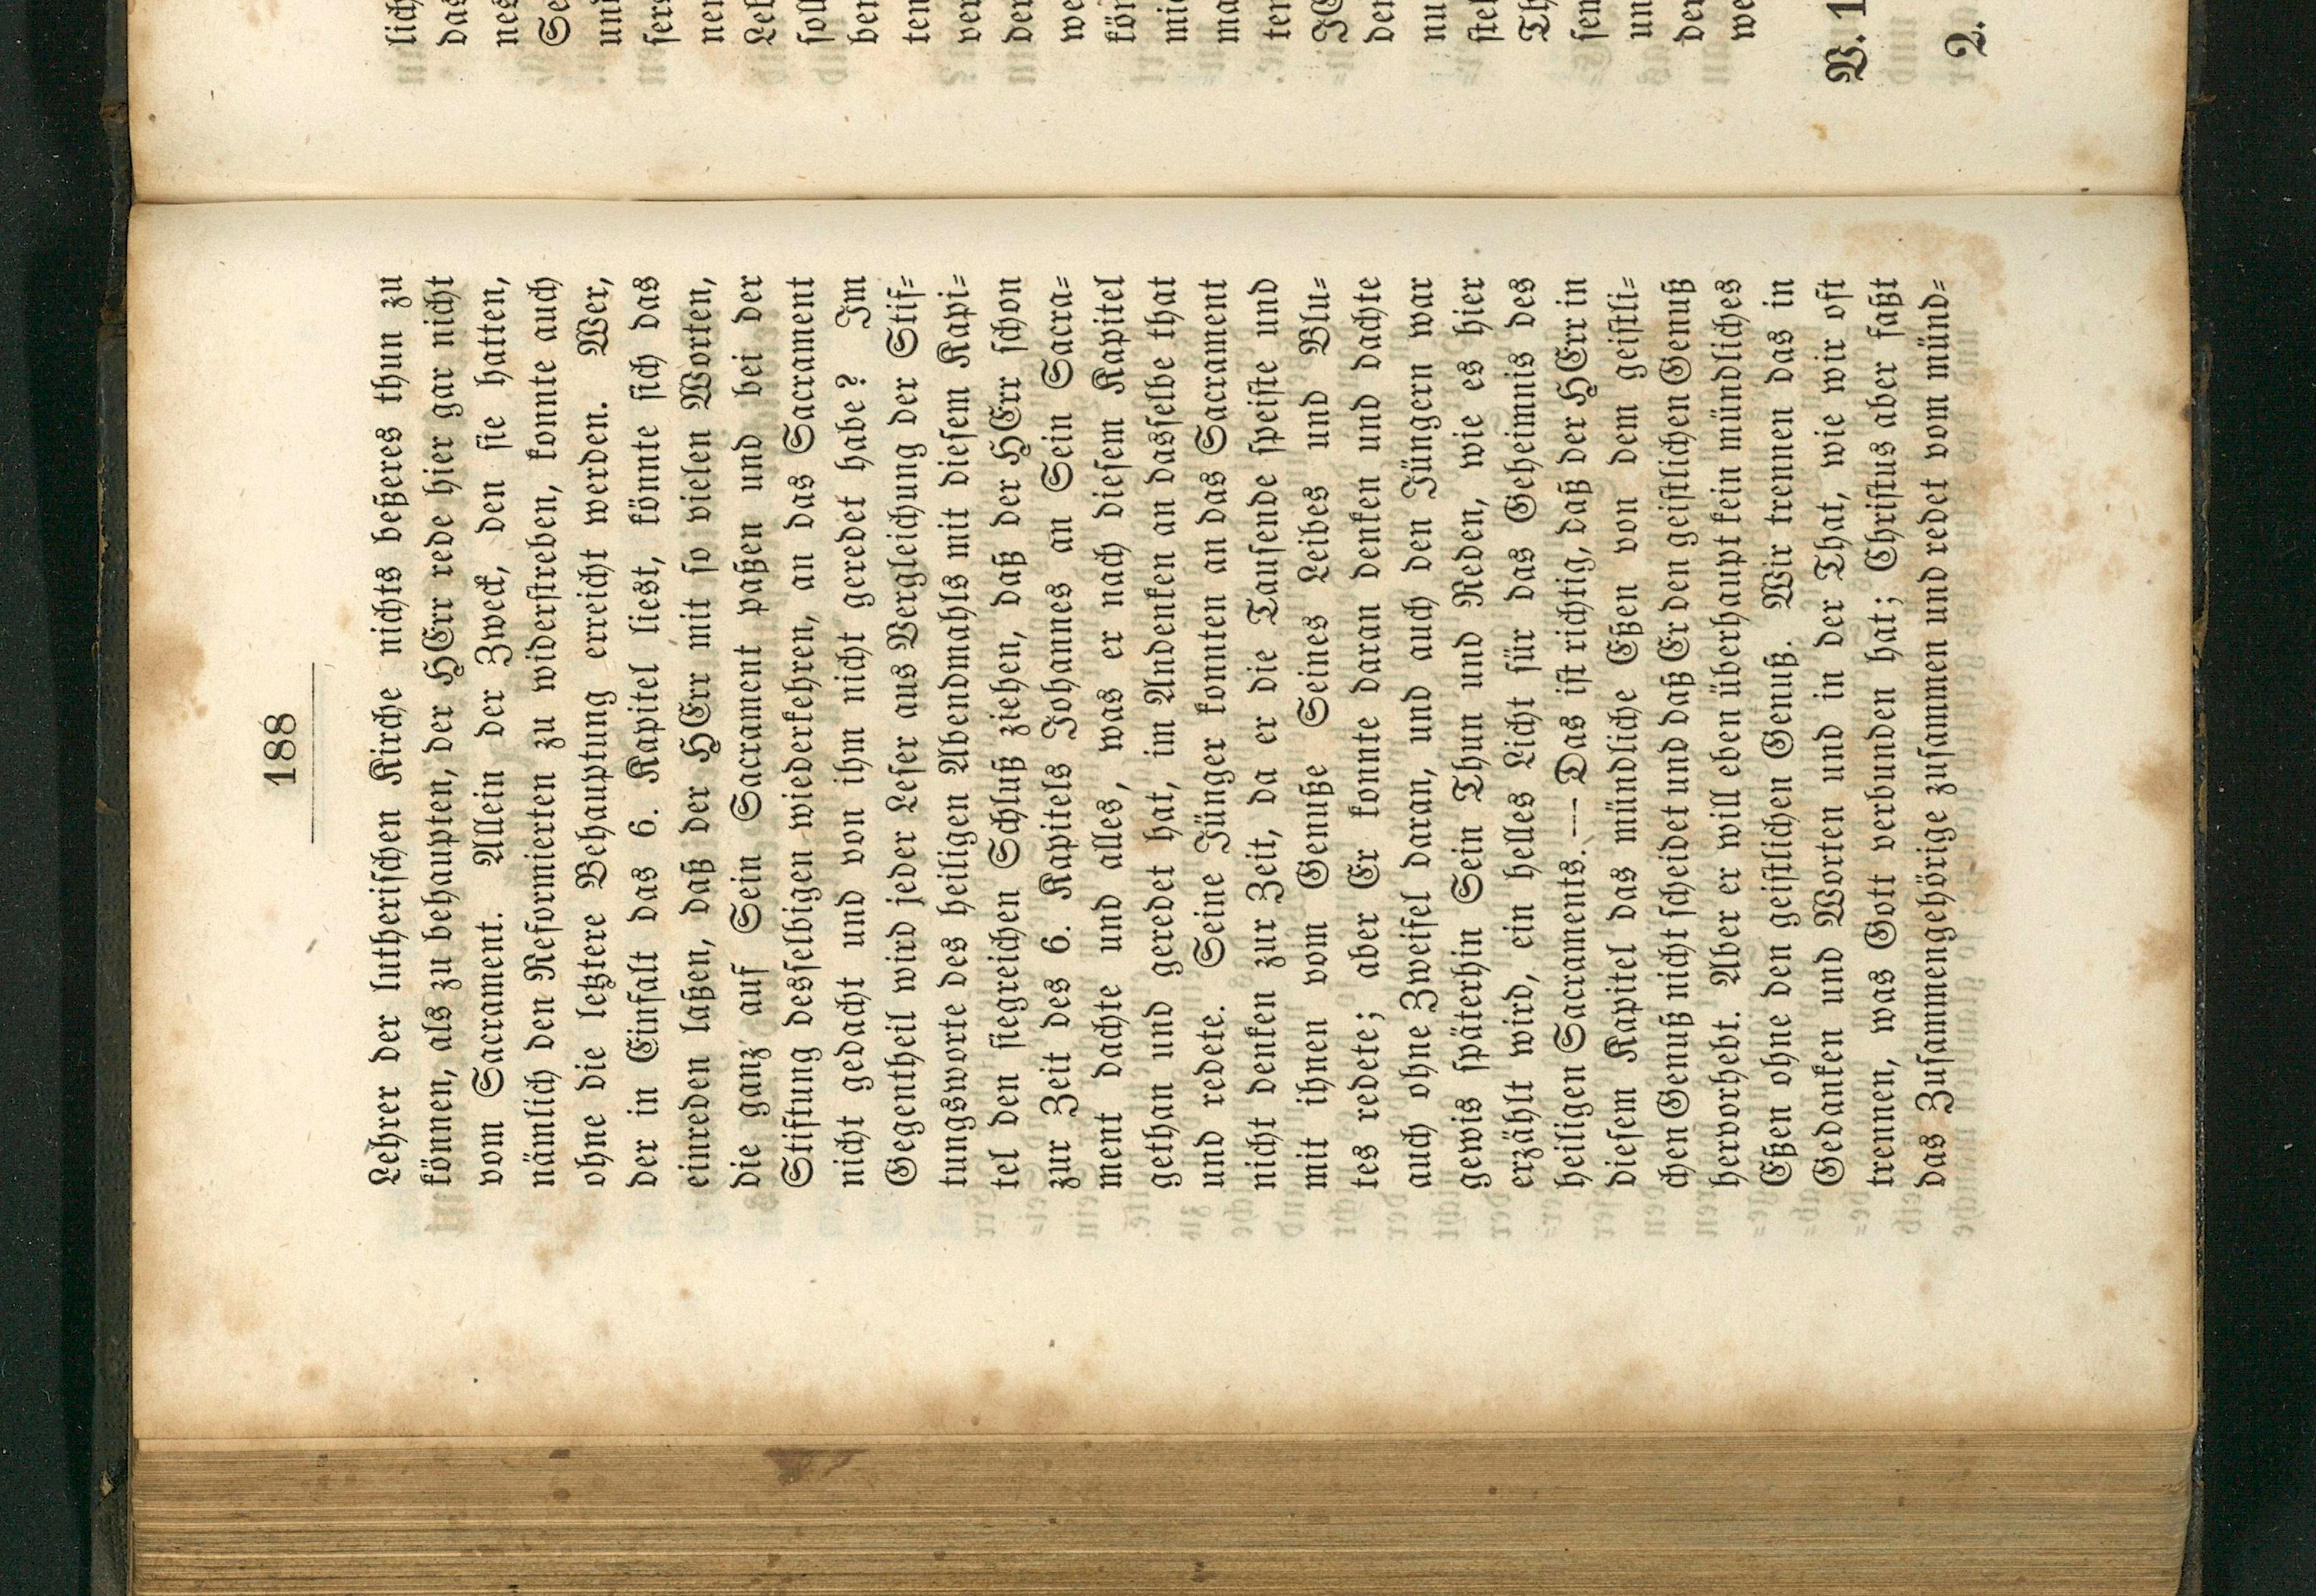 188
Lehrer der lutherischen Kirche nichts beßeres thun zu
können, als zu behaupten, der HErr rede hier gar nicht
vom Sacrament. Allein der Zweck, den sie hatten,
nämlich den Reformierten zu widerstreben, konnte auch
ohne die letztere Behauptung erreicht werden. Wer,
der in Einfalt das 6. Kapitel liest, könnte sich das
einreden laßen, daß der HErr mit so vielen Worten,
die ganz auf Sein Sacrament paßen und bei der
Stiftung desselbigen wiederkehren, an das Sacrament
nicht gedacht und von ihm nicht geredet habe? Im
Gegentheil wird jeder Leser aus Vergleichung der Stif-
tungsworte des heiligen Abendmahls mit diesem Kapi-
tel den siegreichen Schluß ziehen, daß der HErr schon
zur Zeit des 6. Kapitels Johannes an Sein Sacra-
ment dachte und alles, was er nach diesem Kapitel
gethan und geredet hat, im Andenken an dasselbe that
und redete. Seine Jünger konnten an das Sacrament
nicht denken zur Zeit, da er die Tausende speiste und
mit ihnen vom Genuße Seines Leibes und Blu-
tes redete; aber Er konnte daran denken und dachte
auch ohne Zweifel daran, und auch den Jüngern war
gewis späterhin Sein Thun und Reden, wie es hier
erzählt wird, ein helles Licht für das Geheimnis des
heiligen Sacraments. — Das ist richtig, daß der HErr in
diesem Kapitel das mündliche Eßen von dem geistli-
chen Genuß nicht scheidet und daß Er den geistlichen Genuß
hervorhebt. Aber er will eben überhaupt kein mündliches
Eßen ohne den geistlichen Genuß. Wir trennen das in
Gedanken und Worten und in der That, wie wir oft
trennen, was Gott verbunden hat; Christus aber faßt
das Zusammengehörige zusammen und redet vom münd-
lich
das
nes
Se
und
ser
ner
Leb
sol
ber
ten
ver
der
we
kön
mic
ma
ten
JE
der
nu
stel
Th
sen
un
der
we
V. 1
2.